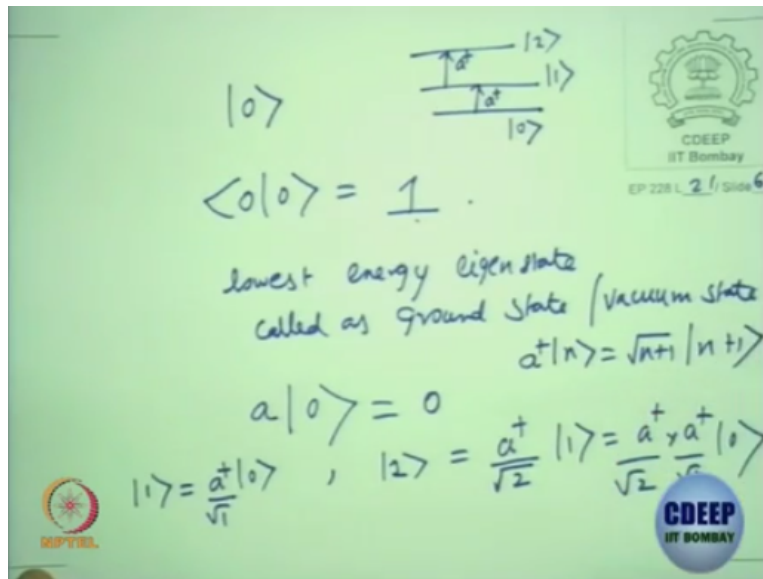 |0⟩
a† |2⟩
a† |1⟩
|0⟩
CDEEP
IIT Bombay
EP 228 L 21 / Slide 6
<0|0> = 1 .
lowest energy eigenstate
called as ground state / vacuum state
a†|n⟩ = √n+1 |n+1⟩
a|0⟩ = 0
|1⟩ = a†/√1 |0⟩ , |2⟩ = a†/√2 |1⟩ = a†/√2 × a†/ |0⟩
NPTEL
CDEEP
IIT BOMBAY